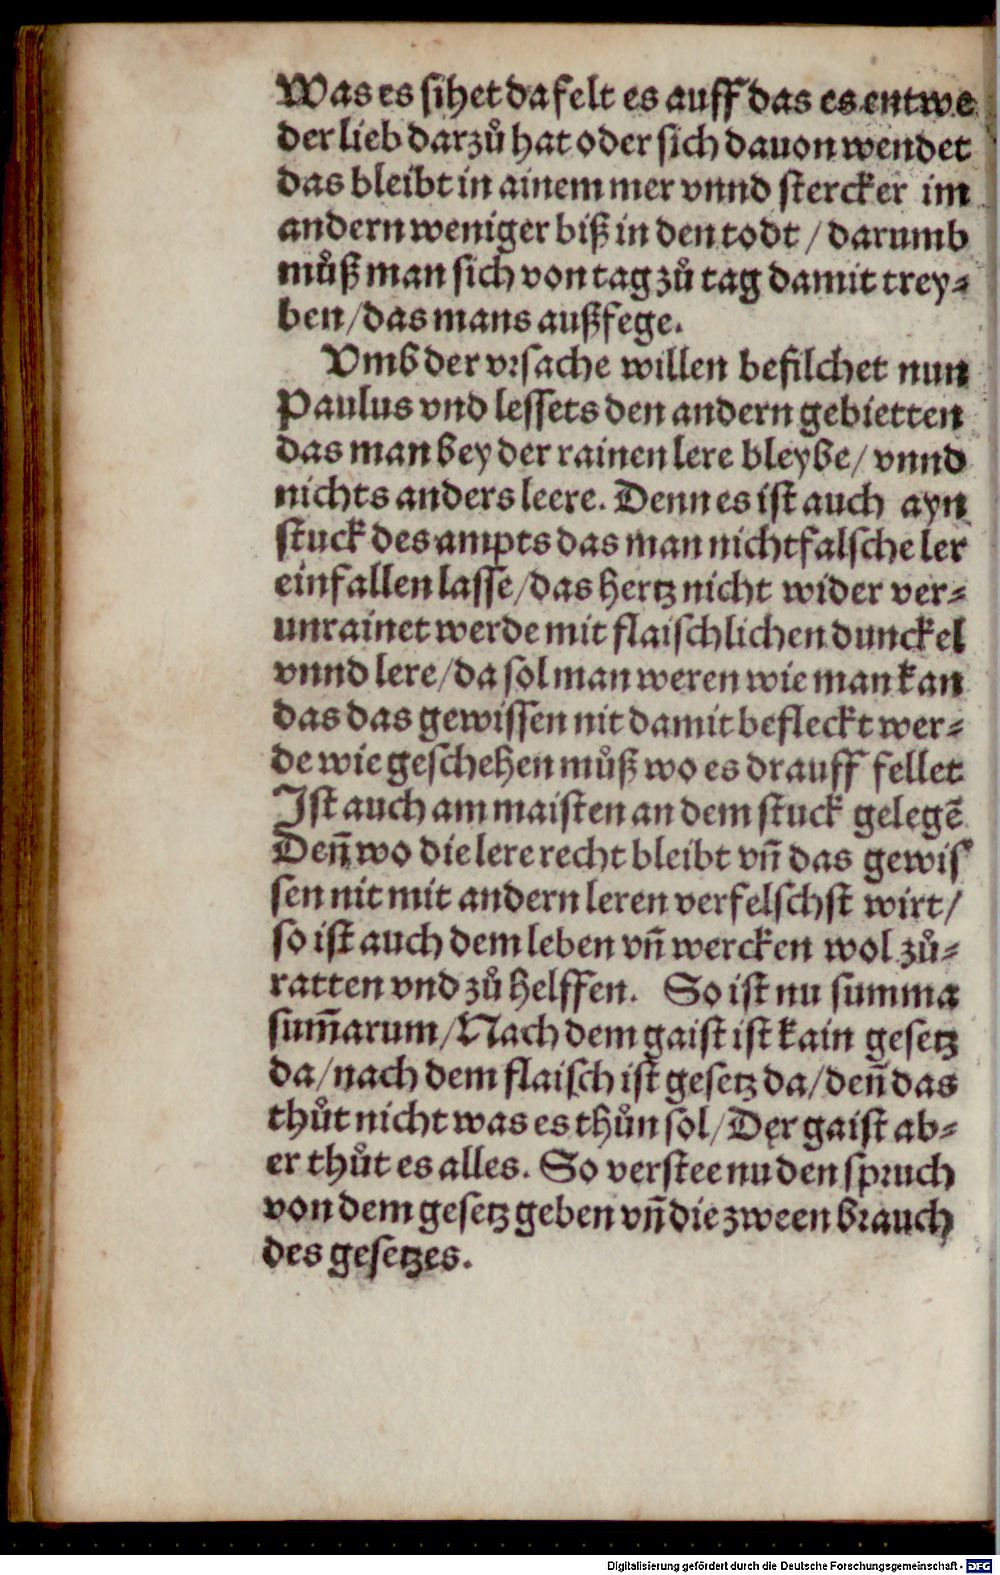 Was es sihet da felt es auff das es entwe
der lieb darzuͦ hat oder sich dauon wendet
das bleibt in ainem mer vnnd stercker im
andern weniger biß in den todt / darumb
muͦß man sich von tag zuͦ tag damit trey⸗
ben / das mans außfege.
Vmb der vrsache willen befilchet nun
Paulus vnd lessets den andern gebietten
das man bey der rainen lere bleybe / vnnd
nichts anders leere. Denn es ist auch ayn
stuck des ampts das man nicht falsche ler
einfallen lasse / das hertz nicht wider ver⸗
unrainet werde mit flaischlichen dunckel
vnnd lere / da sol man weren wie man kan
das das gewissen nit damit befleckt wer⸗
de wie geschehen muͦß wo es drauff fellet
Ist auch am maisten an dem stuck gelegē
Den̄ wo die lere recht bleibt vn̄ das gewis
sen nit mit andern leren verfelschst wirt /
so ist auch dem leben vn̄ wercken wol zuͦ⸗
ratten vnd zuͦ helffen. So ist nu summa
sum̄arum / Nach dem gaist ist kain gesetz
da / nach dem flaisch ist gesetz da / den̄ das
thuͦt nicht was es thuͦn sol / Der gaist ab⸗
er thuͦt es alles. So verstee nu den spruch
von dem gesetz geben vn̄ die zween brauch
des gesetzes.
Digitalisierung gefördert durch die Deutsche Forschungsgemeinschaft - DFG